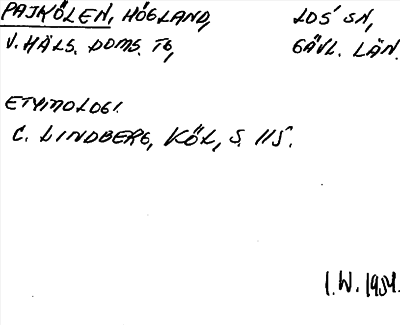 PAJKÖLEN, HÖGLAND, LOS' SN,
V. HÄLS. DOMS. TG, GÄVL. LÄN.
ETYMOLOGI.
C. LINDBERG, KÖL, S. 115.
I.W. 1954.